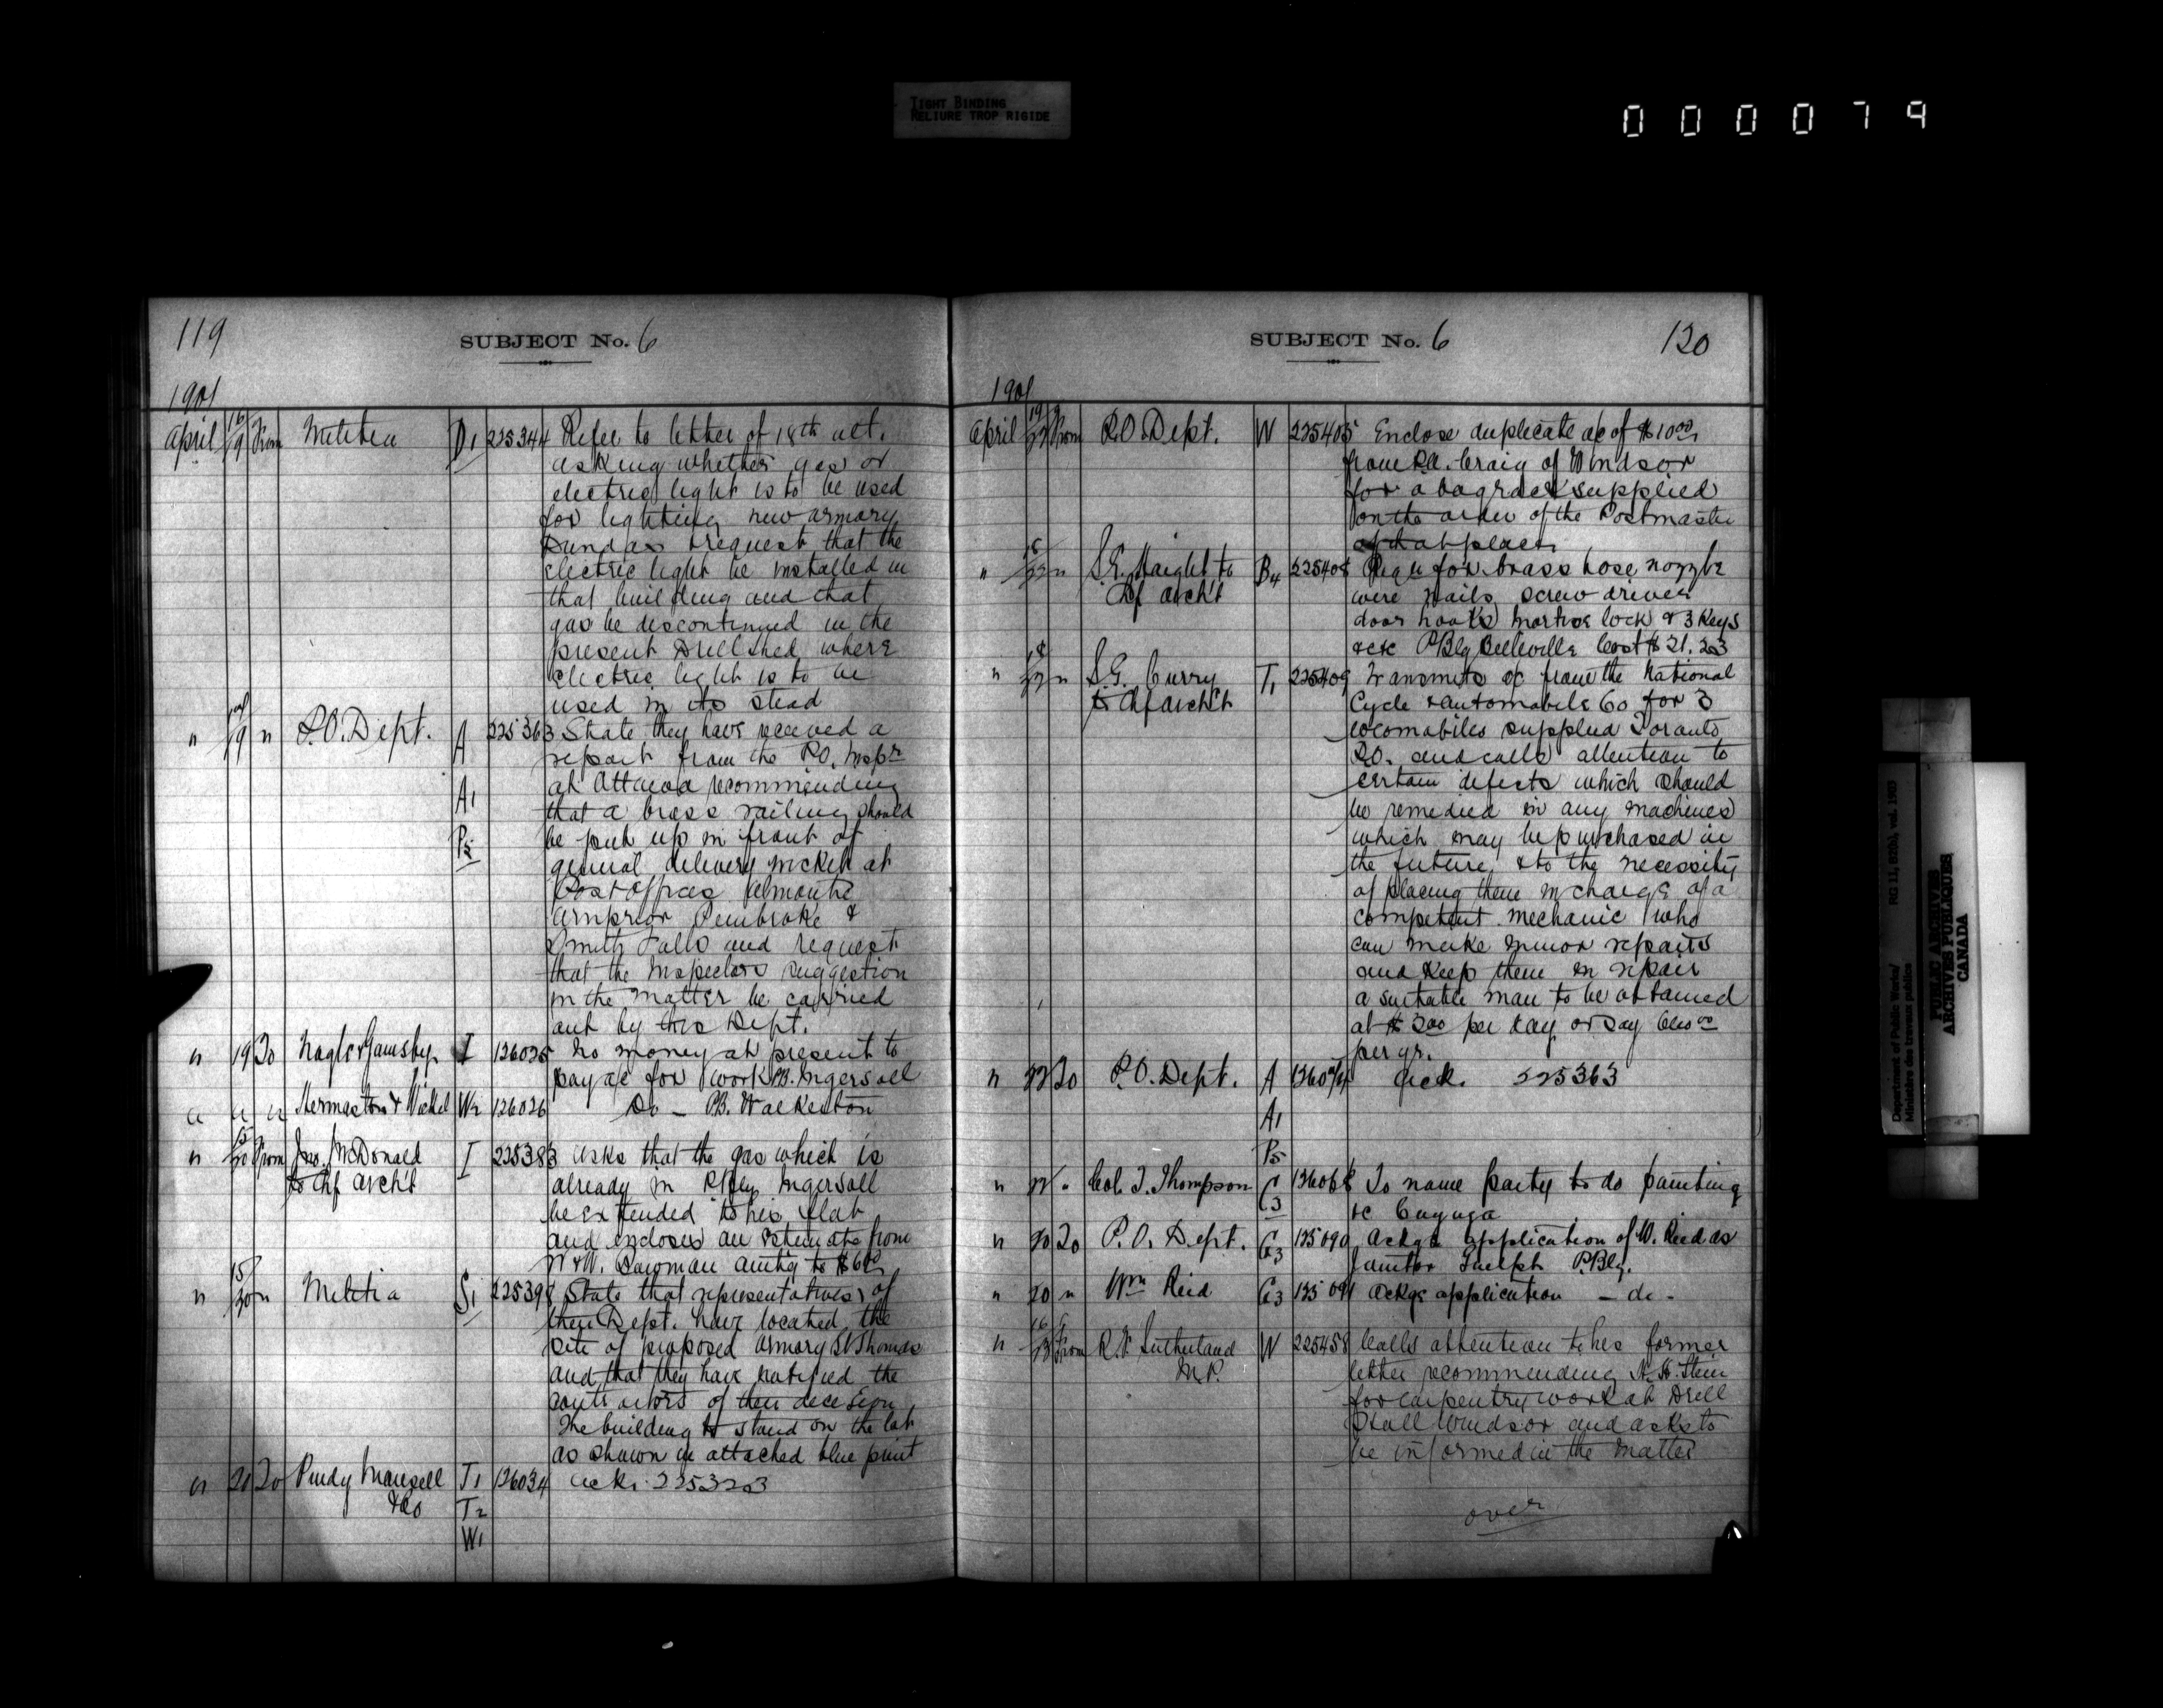 TIGHT BINDING
RELIURE TROP RIGIDE
000079
119
SUBJECT No. 6
1901
April 16/19 From Militia D1 225344 Refer to letter of 18th ult.
asking whether gas or
electric light is to be used
for lighting new armory
Dundas & request that the
electric light be installed in
that building and that
gas be discontinued in the
present Drill shed where
electric light is to be
used in its stead
" 19 " P.O. Dept. A 225363 State they have received a
report from the P.O. Inspr
A1 at Ottawa recommending
that a brass railing should
P5 be put up in front of
general delivery wicket at
Post Offices Almonte
Arnprior Pembroke &
Smiths Falls and request
that the Inspectors suggestion
in the matter be carried
out by this Dept.
" 19 To Nagle & Gamsby I 126025 No money at present to
pay a/c for work P.B. Ingersoll
" " " & Wickel W2 126026 Do - P.B. Walkerton
" 15/20 From Jno. McDonald I 225383 Asks that the gas which is
to Chf Archt already in PBlg Ingersoll
be extended to his flat
and encloses an estimate from
W. Bowman amtg to
" 15/20 " Militia S1 22539 State that representatives of
their Dept. have located the
site of proposed Armory St Thomas
and that they have notified the
contractors of their decision
The building to stand on the lot
as shown in attached blue print
" 20 To Purdy Mansell T1 126034 Ack. 225323
& Co T2
W1
SUBJECT No. 6
120
1901
April 19/22 From P.O. Dept. W 225405 Enclose duplicate a/c of $10.00
from Craig of Windsor
for a bag rack supplied
on the order of the Postmaster
of that place
" 18/22 " S.E. Haight to B4 22540 Requ for brass hose nozzle
Chf Archt wire nails screw driver
door hooks mortise lock & 3 keys
&c &c PBlg Belleville Cost $21.23
" 18/22 " S.G. Curry T1 225409 Transmits a/c from the National
to Chf Archt Cycle & Automobile Co for 3
locomobiles supplied Toronto
P.O. and calls attention to
certain defects which should
be remedied in any machines
which may be purchased in
the future & to the necessity
of placing them in charge of a
competent mechanic who
can make minor repairs
and keep them in repair
a suitable man to be obtained
at $2.00 per day or say
per yr.
" 22 To P.O. Dept. A Ack. 225363
A1
P5
" 22 " Col. T. Thompson C3 126068 To name party to do painting
&c Cayuga
" 20 To P.O. Dept. G3 125090 Ackge application of W. Reid as
Janitor Guelph P.Blg.
" 20 " Wm Reid G3 125091 Ackge application - do -
" 16/23 From R.F. Sutherland W 225458 Calls attention to his former
M.P. letter recommending Stein
for carpentry work at Drill
Hall Windsor and asks to
be informed in the matter
over
Department of Public Works/
Ministère des travaux publics
RG 11, B2(b), vol. 1903
PUBLIC ARCHIVES
ARCHIVES PUBLIQUES
CANADA